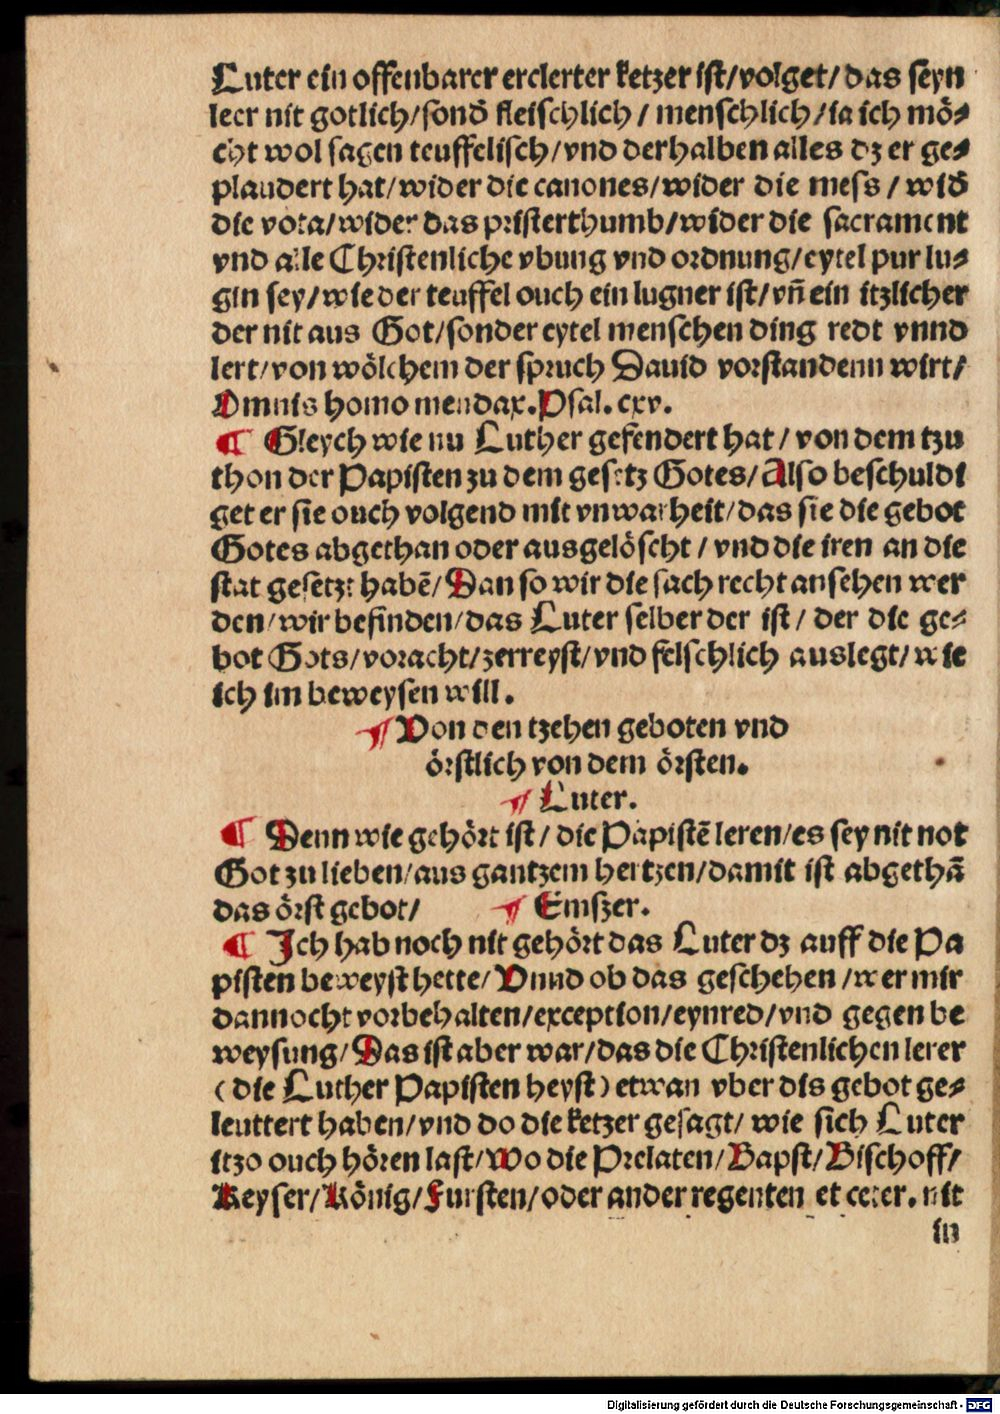 Luter ein offenbarer erclerter ketzer ist/volget/das seyn
leer nit gotlich/sond̄ fleischlich/ menschlich/ia ich mö⸗
cht wol sagen teuffelisch/vnd derhalben alles dz er ge⸗
plaudert hat/wider die canones/wider die mess/ wid̄
die vota/wider das pristerthumb/wider die sacrament
vnd alle Christenliche vbung vnd ordnung/eytel pur lu⸗
gin sey/wie der teuffel ouch ein lugner ist/vn̄ ein itzlicher
der nit aus Got/sonder eytel menschen ding redt vnnd
lert/von wölchem der spruch Dauid vorstandenn wirt/
Omnis homo mendax.Psal.cxv.
¶ Gleych wie nu Luther gesendert hat/ von dem tzu
thon der Papisten zu dem gesetz Gotes/Also beschuldi
get er sie ouch volgend mit vnwarheit/das sie die gebot
Gotes abgethan oder ausgelöscht/ vnd die iren an die
stat gesetzt habē/Dan so wir die sach recht ansehen wer
den/wir befinden/das Luter selber der ist/ der die ge⸗
bot Gots/voracht/zerreyst/vnd felschlich auslegt/wie
ich im beweysen will.
¶ Von den tzehen geboten vnd
örstlich von dem örsten.
¶ Luter.
¶ Denn wie gehört ist/ die Papistē leren/es sey nit not
Got zu lieben/aus gantzem hertzen/damit ist abgethā
das örst gebot/ ¶ Emszer.
¶ Ich hab noch nit gehört das Luter dz auff die Pa
pisten beweyst hette/Vnnd ob das geschehen/wer mir
dannocht vorbehalten/exception/eynred/vnd gegen be
weysung/Das ist aber war/das die Christenlichen lerer
(die Luther Papisten heyst) etwan vber dis gebot ge⸗
leuttert haben/vnd do die ketzer gesagt/ wie sich Luter
itzo ouch hören last/Wo die Prelaten/Bapst/Bischoff/
Keyser/König/Fursten/oder ander regenten et ceter. nit
in
Digitalisierung gefördert durch die Deutsche Forschungsgemeinschaft - DFG